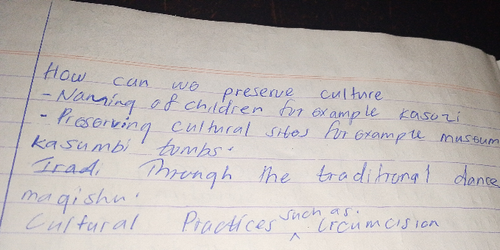 How can we preserve culture
- Naming of children for example kasozi
- Preserving cultural sites for example museum
kasumbi tombs.
Iradi Through the traditional dance
magishu.
Cultural Practices such as. Circumcision